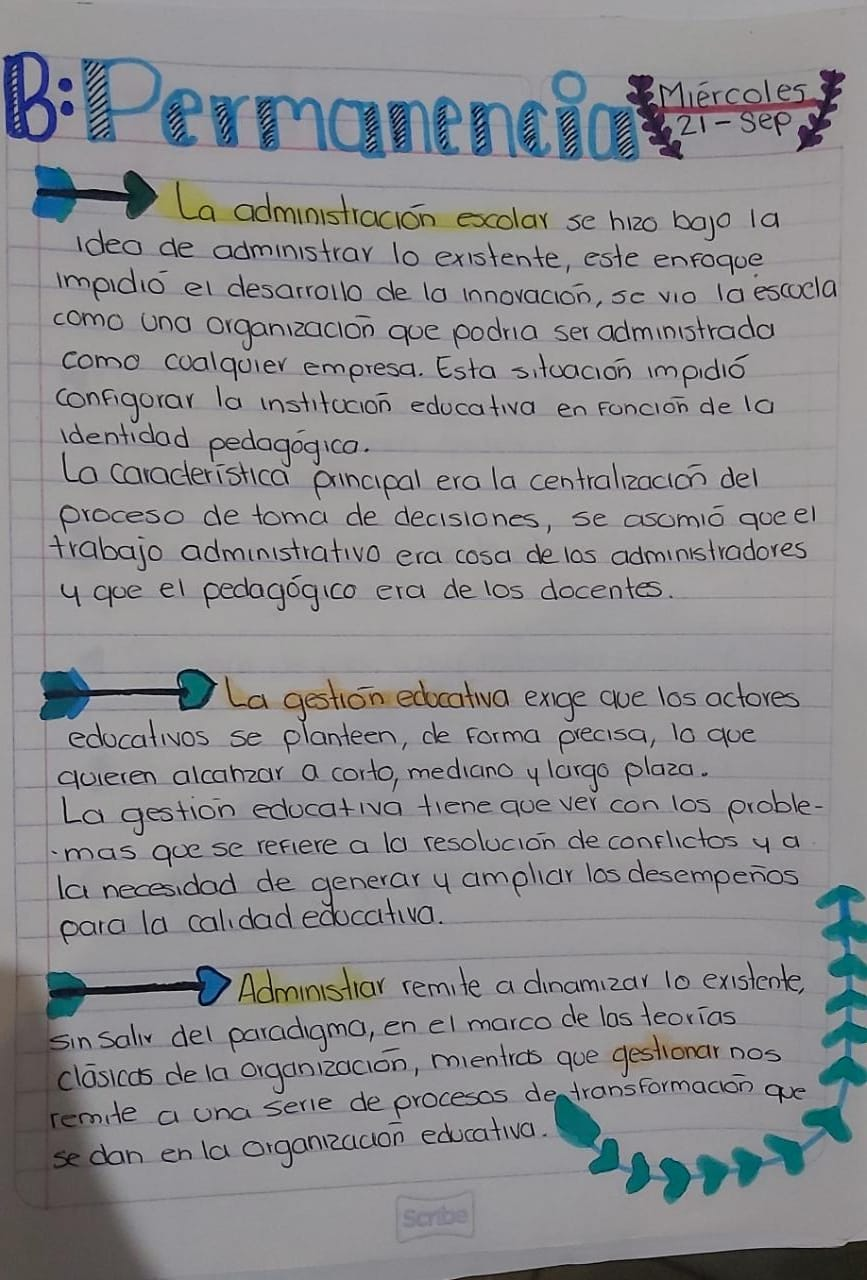 B: Permanencia
Miércoles
21-sep
La administración escolar se hizo bajo la
idea de administrar lo existente, este enfoque
impidió el desarrollo de la innovación, se vio la escuela
como una organización que podria ser administrada
como cualquier empresa. Esta situación impidió
configurar la institución educativa en función de la
identidad pedagógica.
La característica principal era la centralización del
proceso de toma de decisiones, se asumió que el
trabajo administrativo era cosa de los administradores
y que el pedagógico era de los docentes.
La gestión educativa exige que los actores
educativos se planteen, de forma precisa, lo que
quieren alcanzar a corto, mediano y largo plaza.
La gestión educativa tiene que ver con los proble-
mas que se refiere a la resolución de conflictos y a
la necesidad de generar y ampliar los desempeños
para la calidad educativa.
Administrar remite a dinamizar lo existente,
sin salir del paradigma, en el marco de las teorías
clásicas de la organización, mientras que gestionar nos
remite a una serie de procesos de transformación que
se dan en la organización educativa.
Scribe